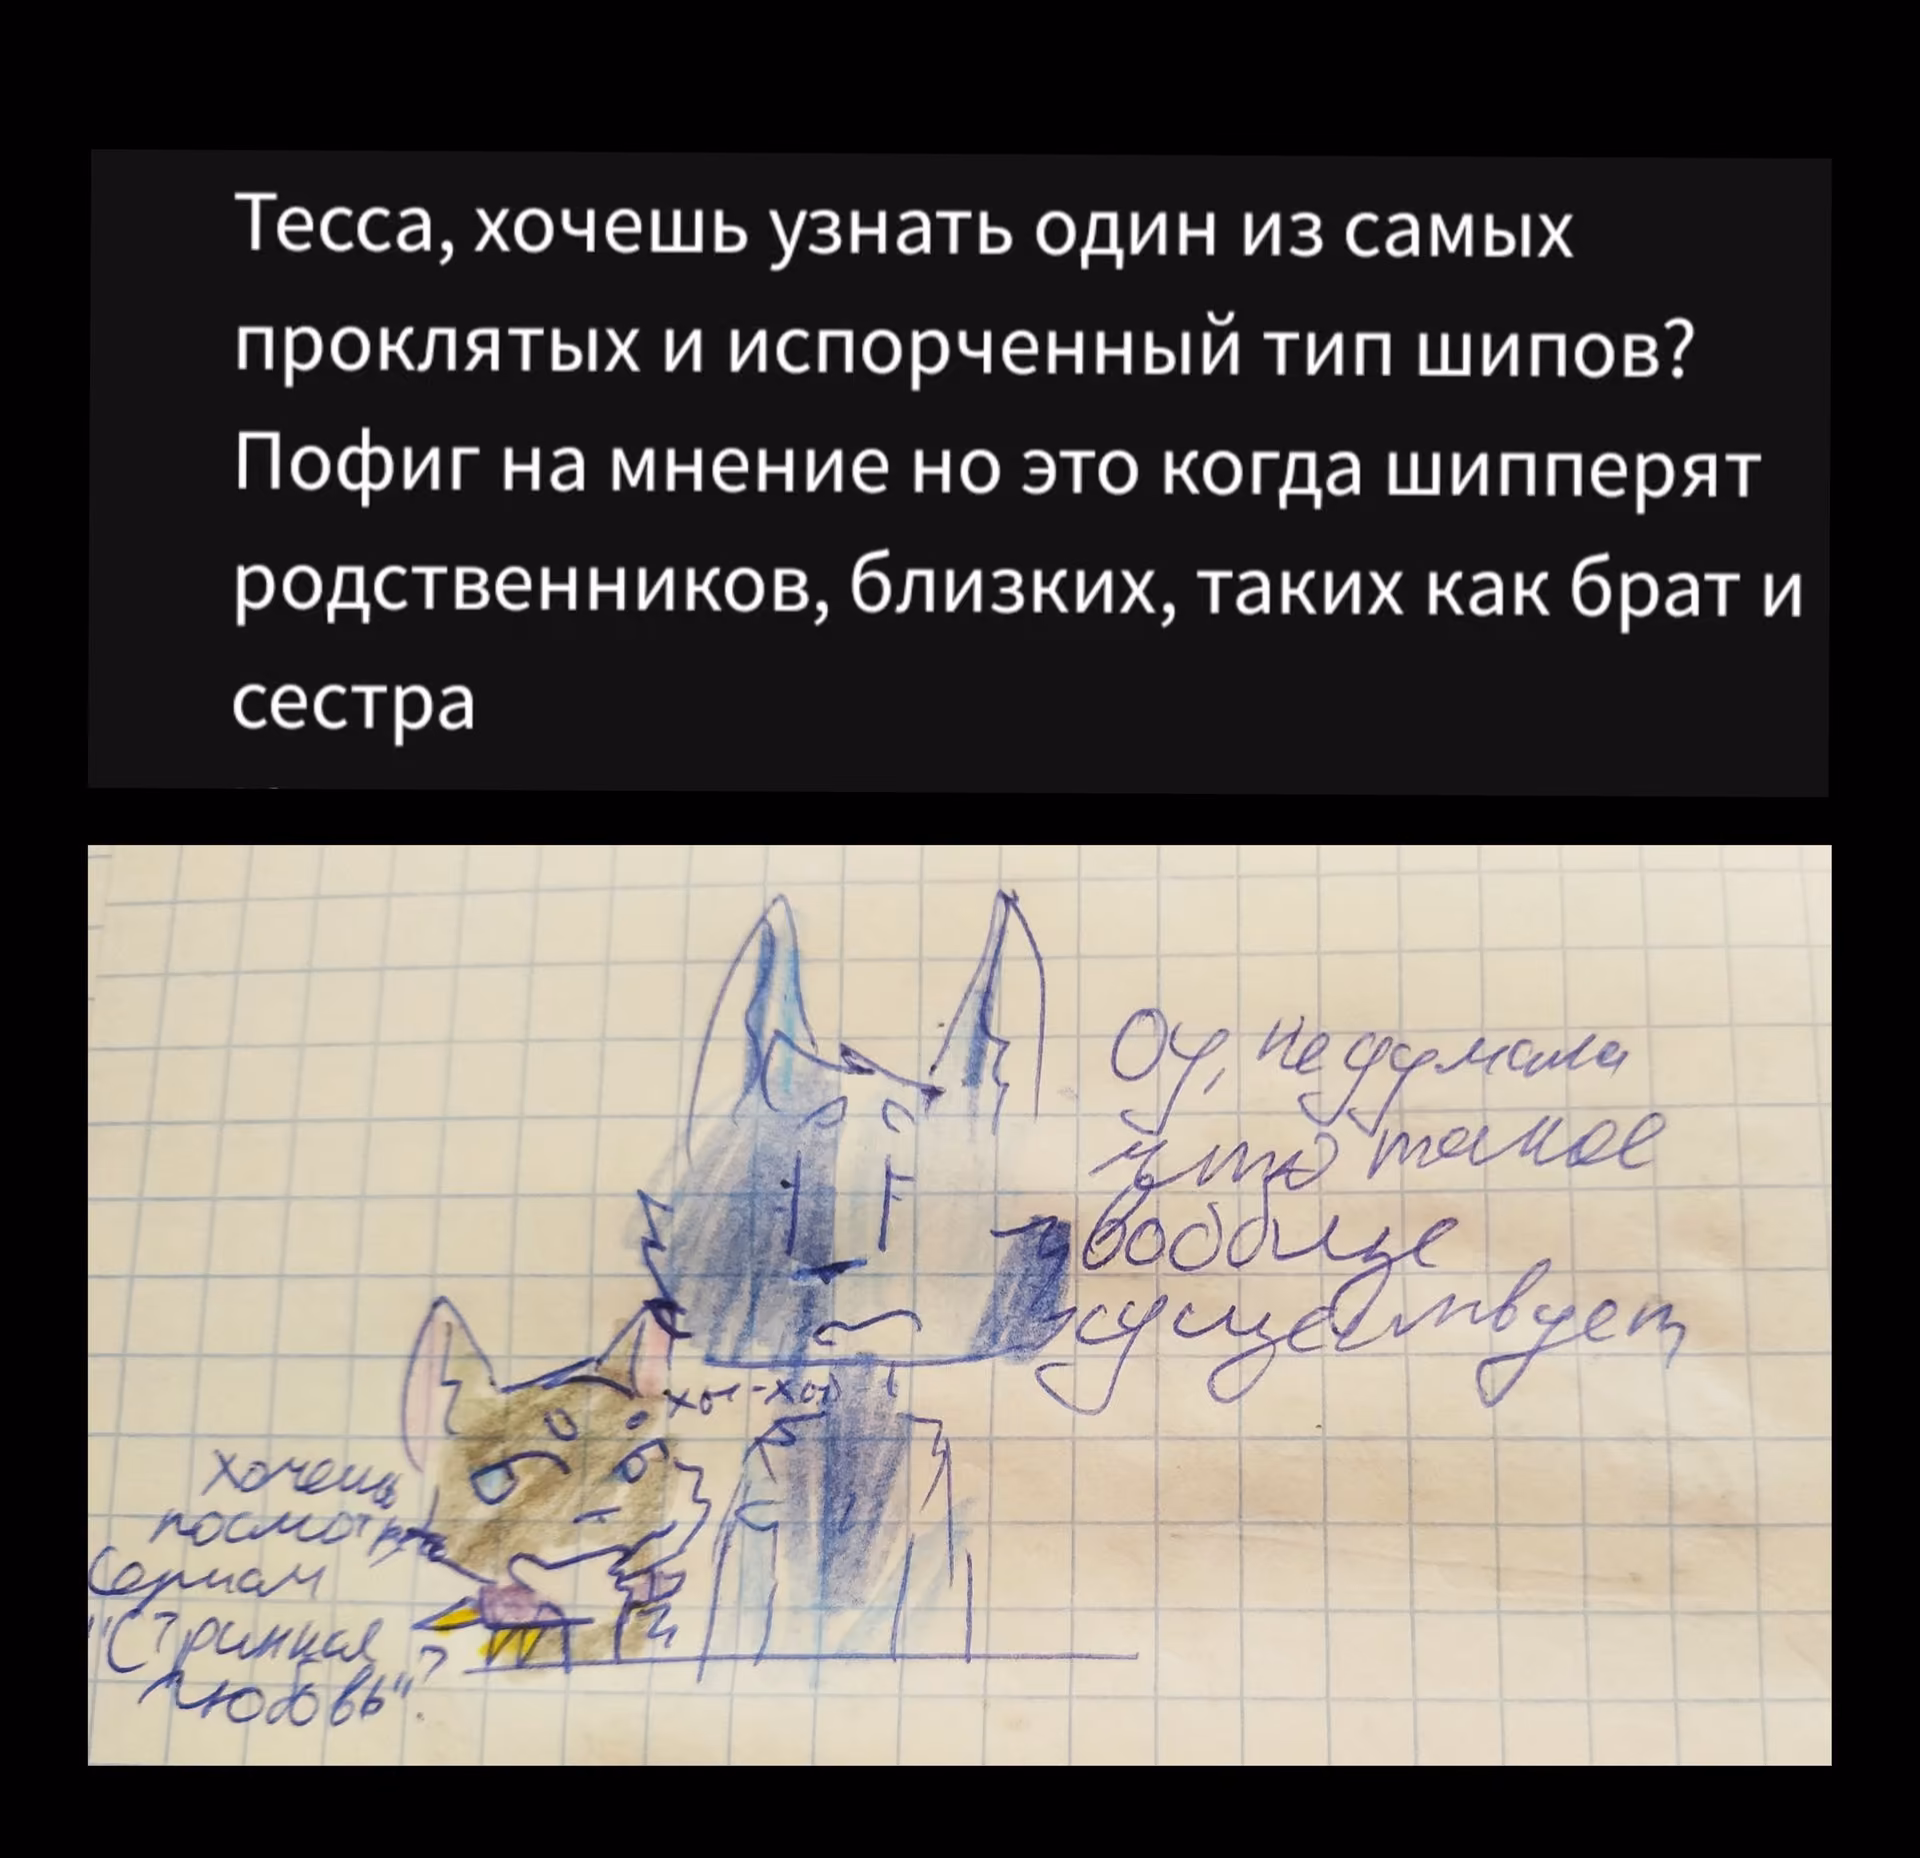 Тесса, хочешь узнать один из самых
проклятых и испорченный тип шипов?
Пофиг на мнение но это когда шипперят
родственников, близких, таких как брат и
сестра
Оу, не думала
что такое
вообще
существует
хы-хы
хочешь
посмотреть
Сериал
"Странная
любовь"?